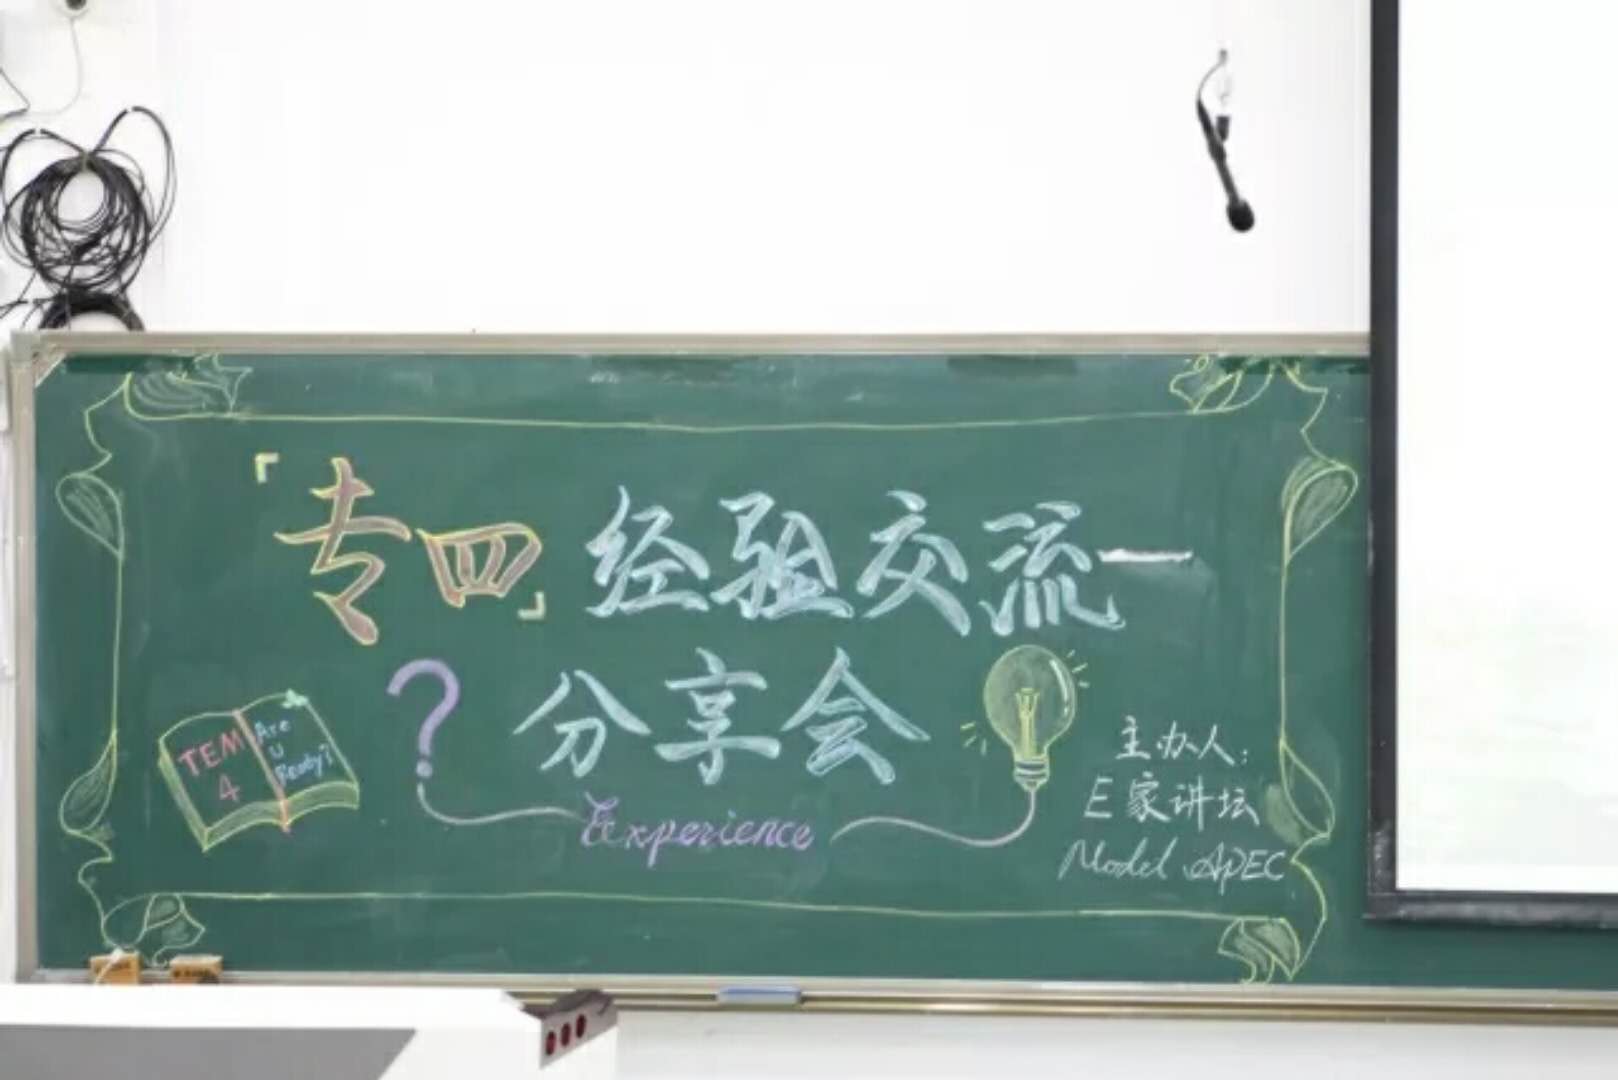 「专四」经验交流一
分享会
TEM
4
Are
U
Ready?
?
Experience
主办人:
E家讲坛
Model APEC